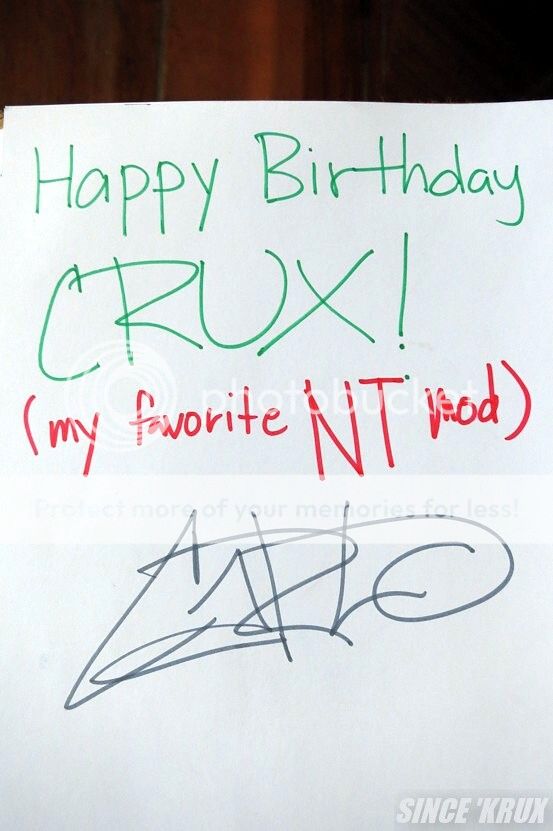 Happy Birthday
CRUX!
(my favorite NT mod)
photobucket
Protect more of your memories for less!
CARLO
SINCE 'KRUX